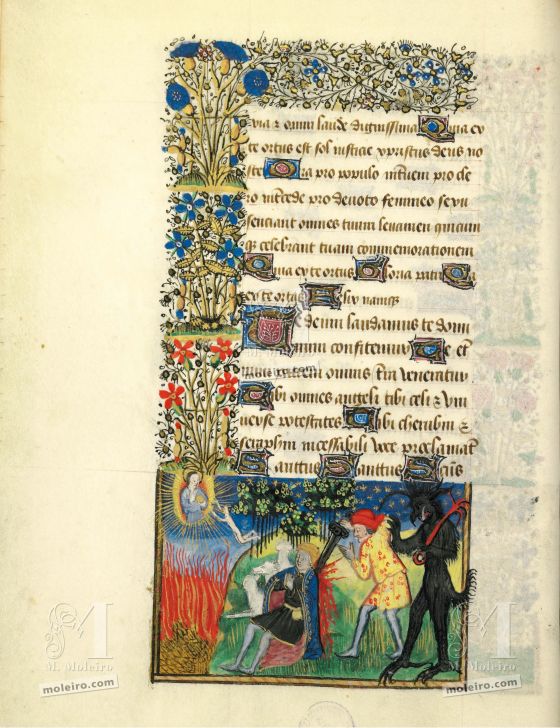 via et omni laude dignissima Quia ex
te ortus est sol iusticie xpristus deus no
ster Ora pro populo interveni pro cle
ro intercede pro devoto femineo sexu
senciant omnes tuum levamen quicum
que celebrant tuam commemorationem
Quia ex te ortus Gloria patri Quia
ex te ortus
Te deum laudamus te domi
num confitemur Te et
omnis terra veneratur
Tibi omnes angeli tibi celi et uni
verse potestates Tibi cherubin et
seraphin incessabili voce proclamant
Sanctus Sanctus Sanctus
moleiro.com
M
M. Moleiro
moleiro.com
M
M. Moleiro
moleiro.com